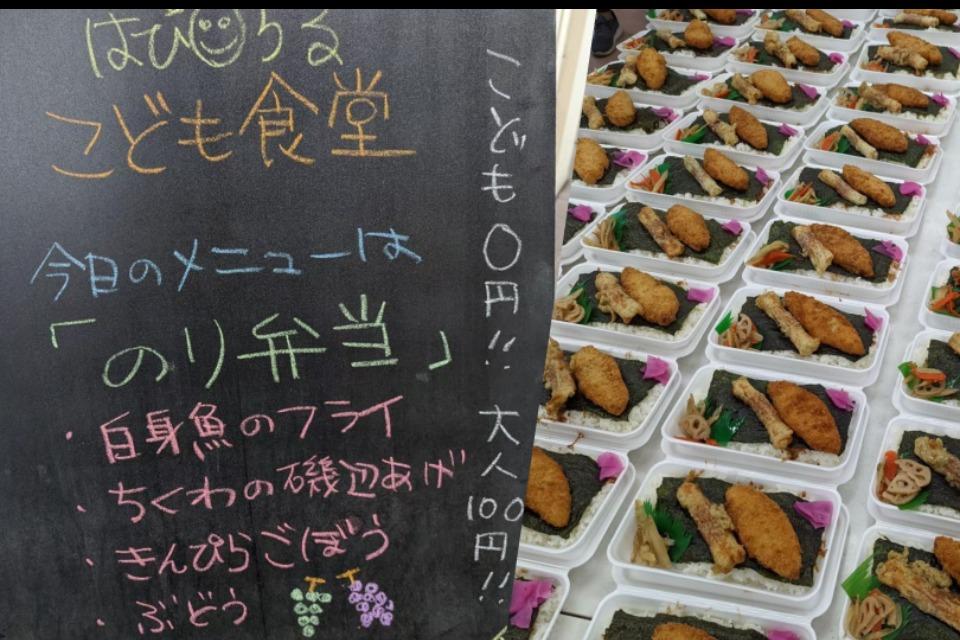 はぴらる
こども食堂
今日のメニューは
「のり弁当」
・白身魚のフライ
・ちくわの磯辺あげ
・きんぴらごぼう
・ぶどう
こども0円!! 大人100円!!